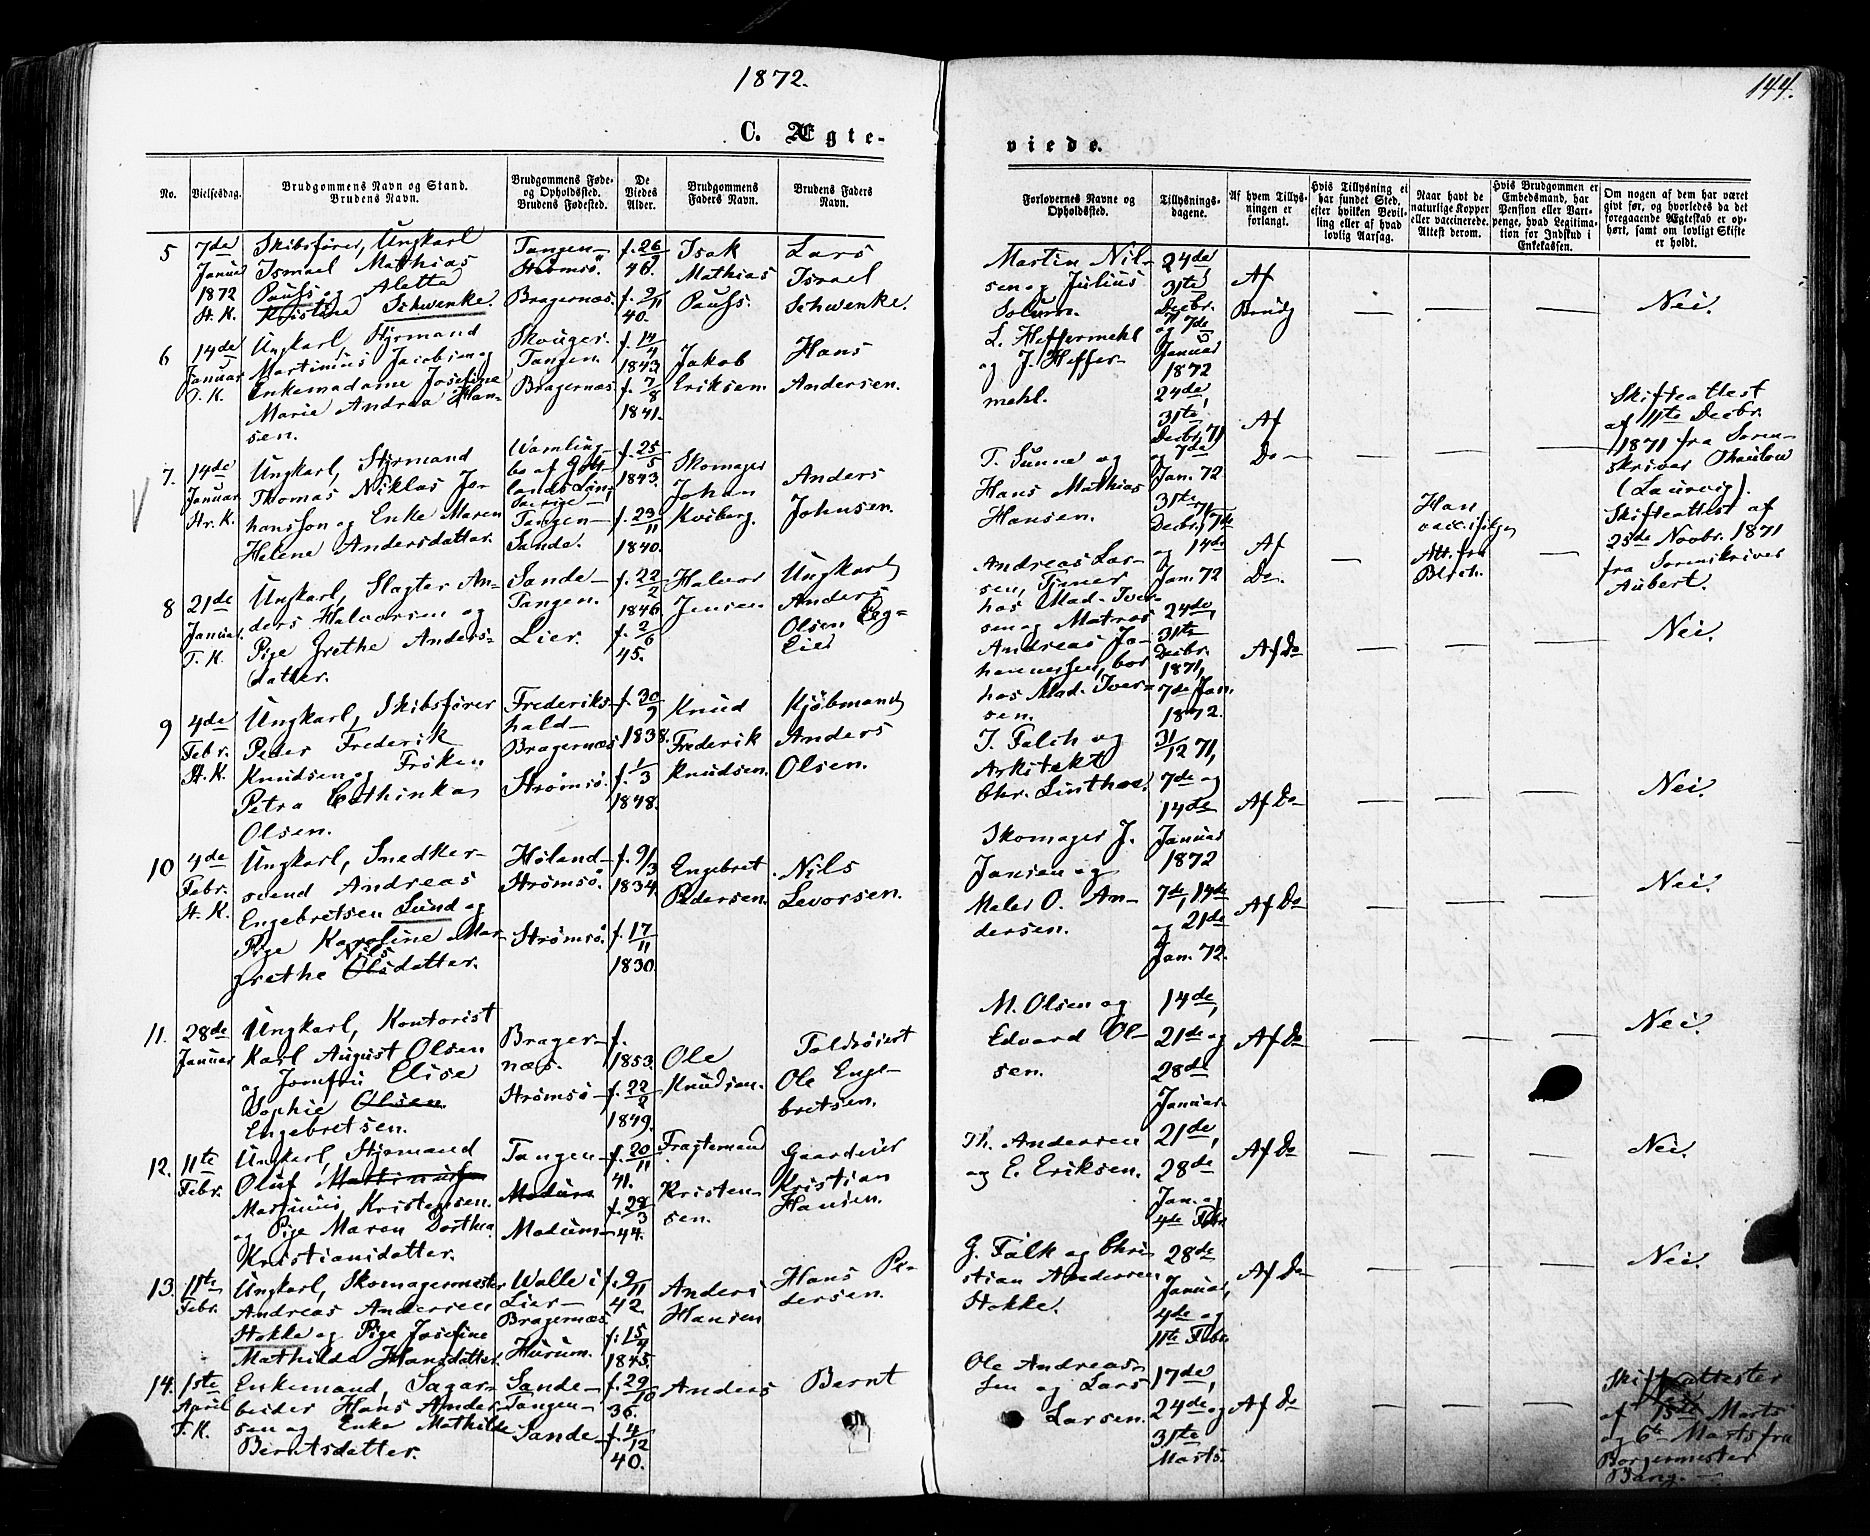 1872.
144.
C. Ægte-
viede.
No.
Vielsesdag.
Brudgommens Navn og Stand.
Brudens Navn.
Brudgommens Føde-
og Opholdssted.
Brudens Fødested.
De
Viedes
Alder.
Brudgommens
Faders Navn.
Brudens Faders
Navn.
Forlovernes Navne og
Opholdssted.
Tillysnings-
dagene.
Af hvem Tillys-
ningen er
forlangt.
Hvis Tillysning ei
har fundet Sted,
efter hvilken Bevil-
ling eller af hvad
lovlig Aarsag.
Naar havt de
naturlige Kopper
eller vaccinerede.
Attest derom.
Hvis Brudgommen er
Embedsmand, har
Pension eller Vart-
penge, hvad Legitima-
tion for Indskud i
Enkekassen.
Om nogen af dem har været
givt før, og hvorledes da det
foregaaende Ægteskab er op-
hørt, samt om lovligt Skifte
er holdt.
5
7de
Januar
1872
St. K.
Skibsfører, Ungkarl
Ismael Mathias
Pauss og Aletta
Kristine Schwenke.
Tangen-
Strømsø
Bragernæs.
f. 26/9
46.
f. 2/11
40.
Isak
Mathias
Pauss.
Lars
Israel
Schwenke.
Martin Nil-
sen og Julius
Solum.
24de,
31te
Decbr.
71
og 7de
Januar
1872
Af
Brudg
— — — Nei.
6
14de
Januar
T. K.
Ungkarl, Styrmand
Martinius Jacobsen og
Enkemadame Josefine
Marie Andrea Han-
sen.
Skouger.
Tangen.
Bragernæs.
f. 14/4
1843
f. 7/8
1841.
Jakob
Eriksen.
Hans
Andersen.
L. Heffermehl
og J. Heffer-
mehl.
24de,
31te
Decbr. 71
og 7de
Jan. 72
Af
Do —
— — —
Skifteattest
af 11te Decbr.
1871 fra Soren-
skriver Thaulow
(Laurvig).
7.
14de
Januar
Str. K.
Ungkarl, Styrmand
Thomas Niklas Jo-
hansson og Enke Maren
Helene Andersdatter.
Wamling-
bo af
Tangen-
Sande.
f. 25/5
1843.
f. 23/11
1840.
Skomager
Johan
Kviberg.
Anders
Johnsen.
T. Sunne og
Hans Mathias
Hansen.
31te
Decbr. 71, 7de
og 14de
Jan. 72
Af
Do.
—
Han
Att. fra
—
Skifteattest af
23de Novbr. 1871
fra Sorenskriver
Aubert.
8
21de
Januar
T. K.
Ungkarl, Slagter An-
ders Halvorsen og
Pige Grethe Anders-
datter.
Sande-
Tangen.
Lier.
f. 22/2
1846.
f. 2/6
45.
Halvor
Jensen
Ungkarl
Anders
Olsen Eg-
Lier
Andreas Lar-
sen, Tjener
hos Mad. Iver-
sen og Matros
Andreas Jo-
hannessen, bor
hos Mad. Iver-
sen.
24de,
31te
Decbr.
1871,
7de Jan.
1872.
Af Do
— — — Nei.
9
4de
Febr.
St. K.
Ungkarl, Skibsfører
Peter Frederik
Knudsen og Frøken
Petra Cathinka
Olsen.
Frederiks-
hald-
Bragernæs.
Strømsø.
f. 30/9
1838.
f. 1/3
1848.
Knud
Frederik
Knudsen.
Kjøbmand
Anders
Olsen.
J. Falch og
Arkitekt
Chr. Linthoe.
31/12 71,
7de og
14de
Januar
1872
Af Do
— — — Nei.
10
4de
Febr.
St. K.
Ungkarl, Snedker-
svend Andreas
Engebretsen Lund og
Pige Karoline Mar-
grethe Olsdatter.
Nils
Høland-
Strømsø.
Strømsø.
f. 9/3
1834.
f. 17/11
1830.
Engebret
Pedersen.
Nils
Levorsen.
Skomager J.
Jansen og
Maler O. An-
dersen.
7de, 14de
og 21de
Jan. 72.
Af Do
— — — Nei.
11.
28de
Januar
Ungkarl, Kontorist
Karl August Olsen
og Jomfru Elise
Sophie Olsen
Engebretsen.
Brager-
næs.
Strømsø-
f.
1853.
f. 22/2
1849.
Ole
Knudsen.
Toldrøiert
Ole Enge-
bretsen.
M. Olsen og
Edvard Ol-
sen.
14de,
21de og
28de
Januar.
Af Do
— — — Nei.
12.
11te
Febr.
Ungkarl, Styrmand
Oluf Martinusen
Martinius Kristensen.
og Pige Maren Dorthea
Kristiansdatter.
Tangen-
Modum
Modum-
f. 20/11
41.
f. 28/3
44.
Fragtemand
Kristen-
sen.
Gaardeier
Kristian
Hansen.
Th. Andersen
og E. Eriksen.
21de,
28de
Jan. og
4de Febr.
Af Do
— — — Nei.
13.
11te
Febr.
Ungkarl, Skomagermester
Andreas Andersen
Stokke og Pige Josefine
Mathilde Hansdatter.
Walle i
Lier-
Bragernæs.
Hurum.
f. 9/11
42.
f. 15/4
1845.
Anders
Hansen
Hans Pe-
dersen.
G. Falk og Chri-
stian Andersen
Stokke.
28de
Januar,
4de og
11te Febr.
Af Do
— — — Nei.
14.
1ste
April
T. K.
Enkemand, Sagar-
beider Hans Ander-
sen og Enke Mathilde
Berntsdatter.
Sande-
Tangen-
Sande-
f. 29/10
36.
f. 4/12
40.
Anders
Bernt
Ole Andreas-
sen og Lars
Larsen.
17de,
24de og
31te
Marts.
Af Do
— — —
Skifteattester
af 15de Marts
og 6te Marts fra
Borgermester
Bang. —